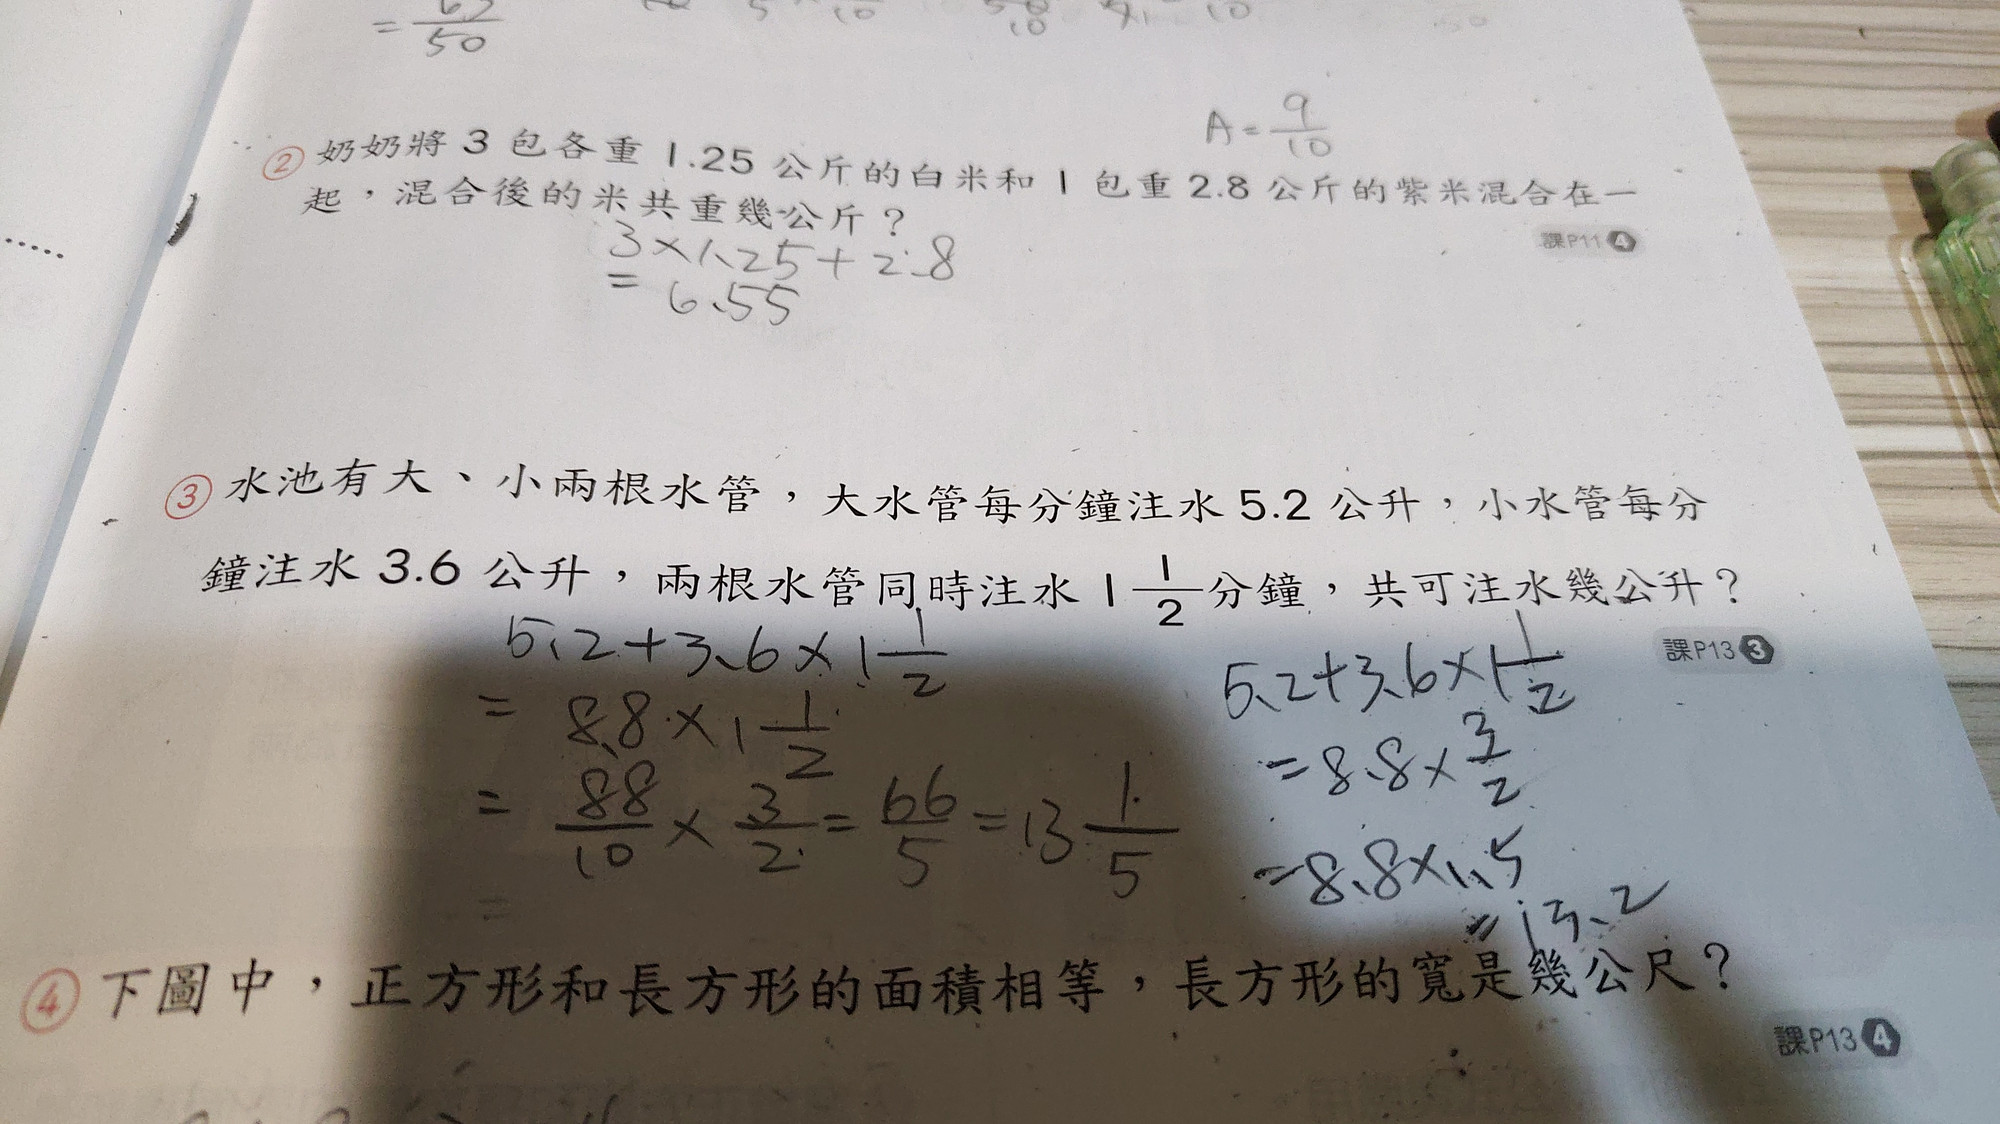 = 63/50
A = 9/10
② 奶奶將 3 包各重 1.25 公斤的白米和 1 包重 2.8 公斤的紫米混合在一
起，混合後的米共重幾公斤？
課P11 4
3×1.25+2.8
= 6.55
③ 水池有大、小兩根水管，大水管每分鐘注水 5.2 公升，小水管每分
鐘注水 3.6 公升，兩根水管同時注水 1 1/2 分鐘，共可注水幾公升？
課P13 3
5.2+3.6×1 1/2
= 8.8×1 1/2
= 88/10 × 3/2 = 66/5 = 13 1/5
=
5.2+3.6×1 1/2
=8.8×3/2
=8.8×1.5
=13.2
④ 下圖中，正方形和長方形的面積相等，長方形的寬是幾公尺？
課P13 4